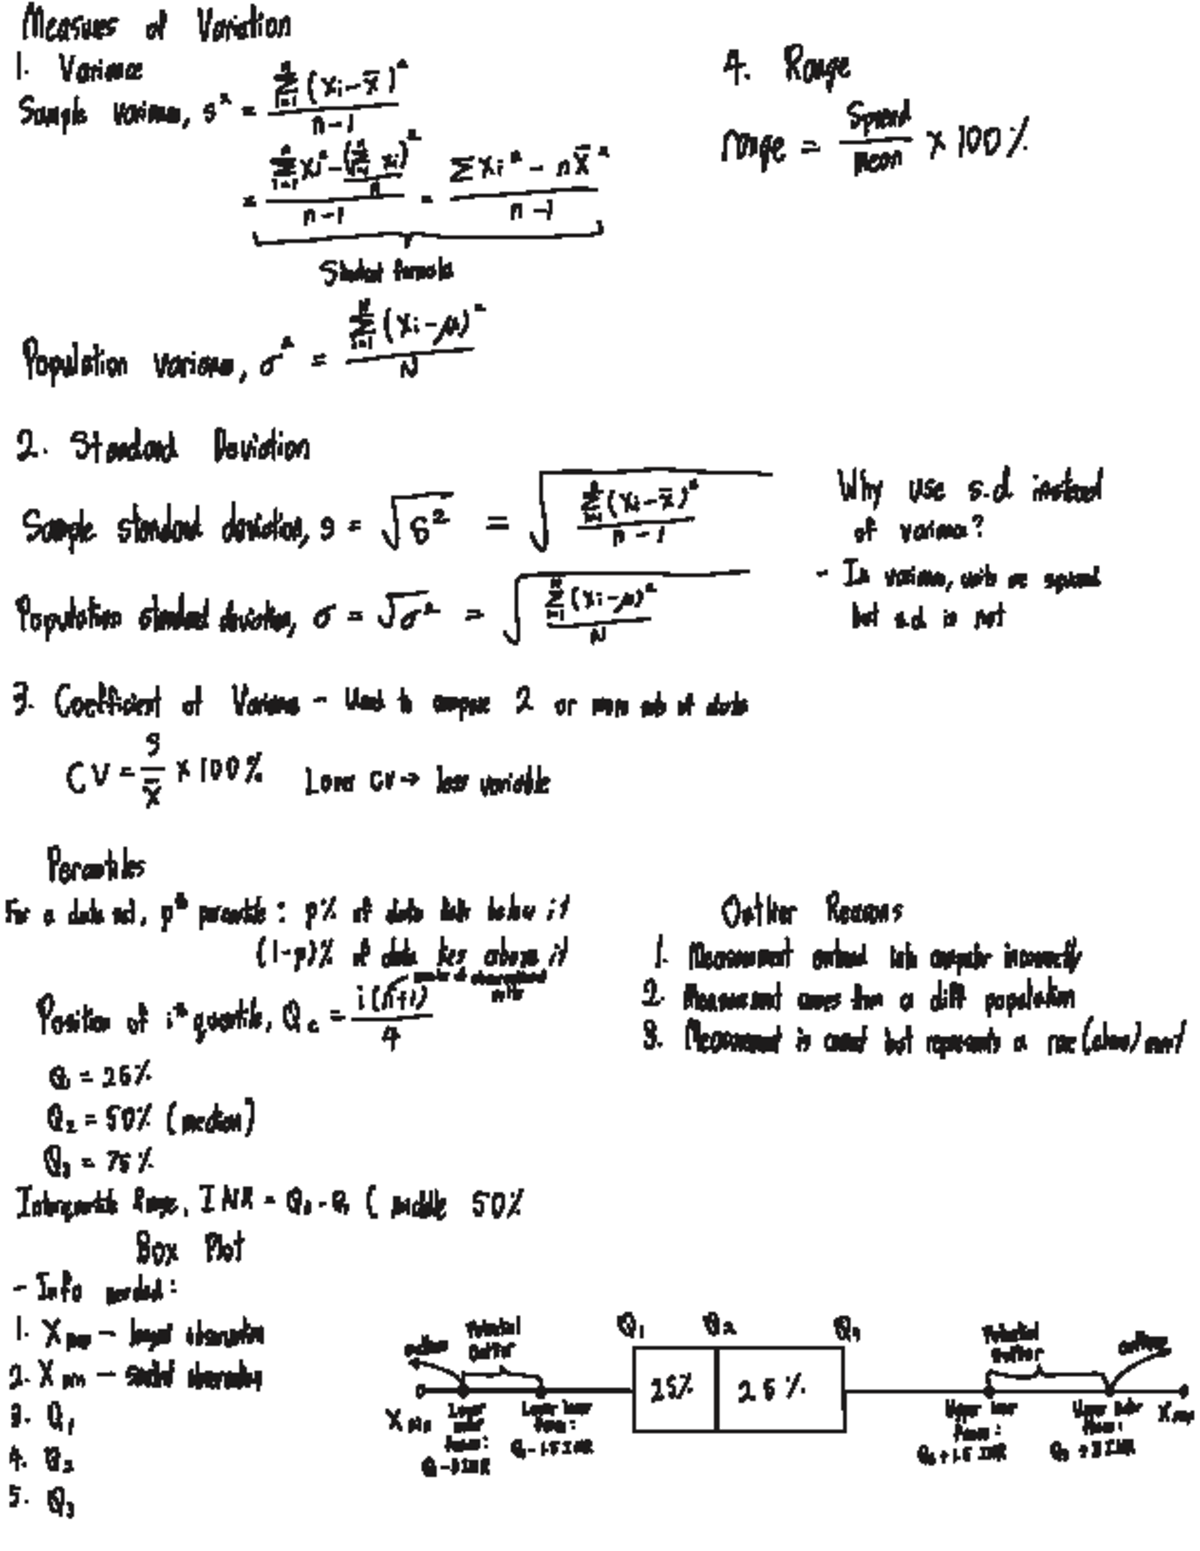 Measures of Variation
1. Variance
Sample variance, s² = Σᵢ₌₁ⁿ (xi - x̄)² / n-1
= Σᵢ₌₁ⁿ xi² - (Σᵢ₌₁ⁿ xi)²/n / n-1 = Σxi² - nx̄² / n-1
Shortest formula
Population variance, σ² = Σᵢ₌₁ᴺ (xi - μ)² / N
4. Range
range = Spread / mean × 100%
2. Standard Deviation
Sample standard deviation, s = √s² = √(Σ (xi - x̄)² / n-1)
Population standard deviation, σ = √σ² = √(Σ (xi - μ)² / N)
Why use s.d instead
of variance?
- In variance, units are squared
but s.d. is not
3. Coefficient of Variance - Used to compare 2 or more sets of data
CV = s / x̄ × 100% Lower CV → less variable
Percentiles
For a data set, pᵗʰ percentile: p% of data lies below it
(1-p)% of data lies above it
number of observations
Position of iᵗʰ quartile, Q = i(n+1) / 4
Q₁ = 25%
Q₂ = 50% (median)
Q₃ = 75%
Interquartile Range, = Q₃ - Q₁ ( middle 50%
Outlier Reasons
1. Measurement entered into computer incorrectly
2. Measurement comes from a diff population
3. Measurement is correct but represents a rare (chance) event
Box Plot
- Info needed:
1. X max - largest observation
2. X min - smallest observation
3. Q₁
4. Q₂
5. Q₃
outliers Potential Outlier Q₁ Q₂ Q₃ Potential Outlier outliers
25% 25%
X min Lower outer fence: Lower inner fence: Upper inner fence: Upper outer fence: X max